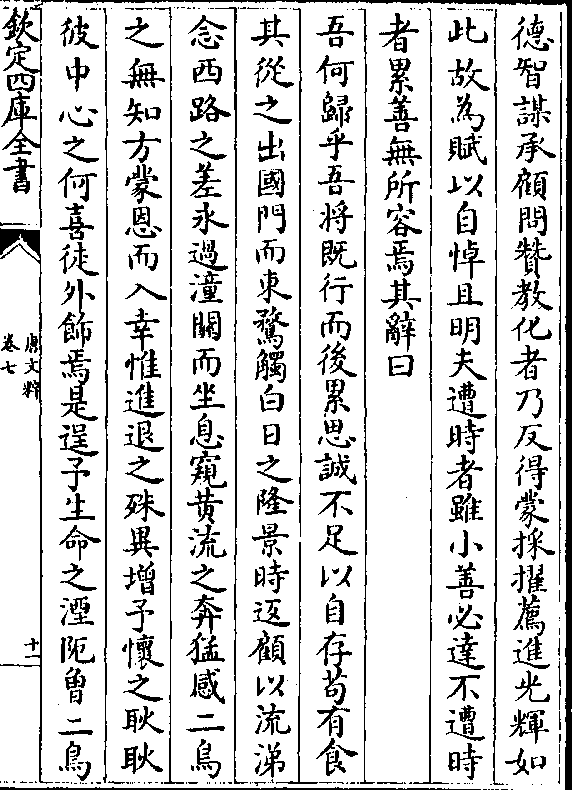 德智謀承顧問贊教化者乃反得蒙採擢薦進光輝如
此故為賦以自悼且明夫遭時者雖小善必達不遭時
者累善無所容焉其辭曰
吾何歸乎吾將既行而後累思誠不足以自存苟有食
其從之出國門而東騖觸白日之隆景時返顧以流涕
念西路之羌永過潼關而坐息窺黄流之奔猛感二鳥
之無知方蒙恩而入幸惟進退之殊異增予懷之耿耿
彼中心之何喜徒外飾焉是逞予生命之湮阨曾二鳥
欽定四庫全書
唐文粹
卷七
十一